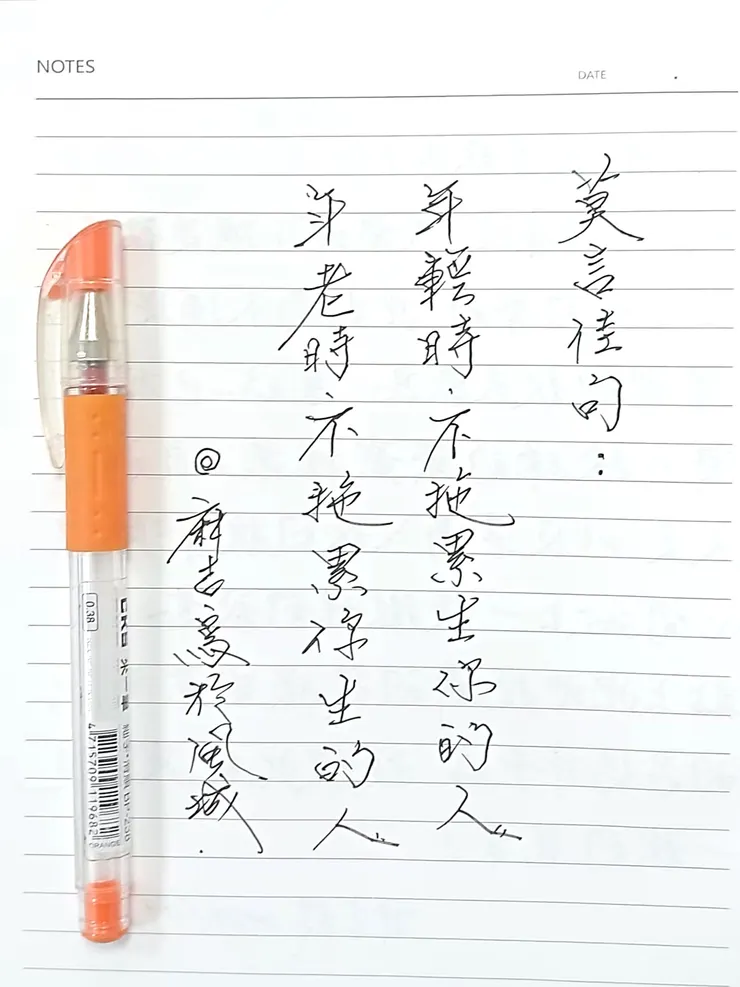 NOTES
DATE
莫言佳句：
年輕時，不拖累生你的人。
年老時不拖累你生的人。
◎麻吉寫於風城．
0.38
4715709119682
ORANGE